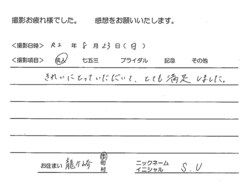 撮影お疲れ様でした。　感想をお願いいたします。
＜撮影日時＞　R2　年　8　月　23　日（日）
＜撮影項目＞　成人　七五三　ブライダル　記念　その他
きれいにとっていただいて、とても満足しました。
お住まい　龍ヶ崎　市　町　村　ニックネーム　イニシャル　S.U